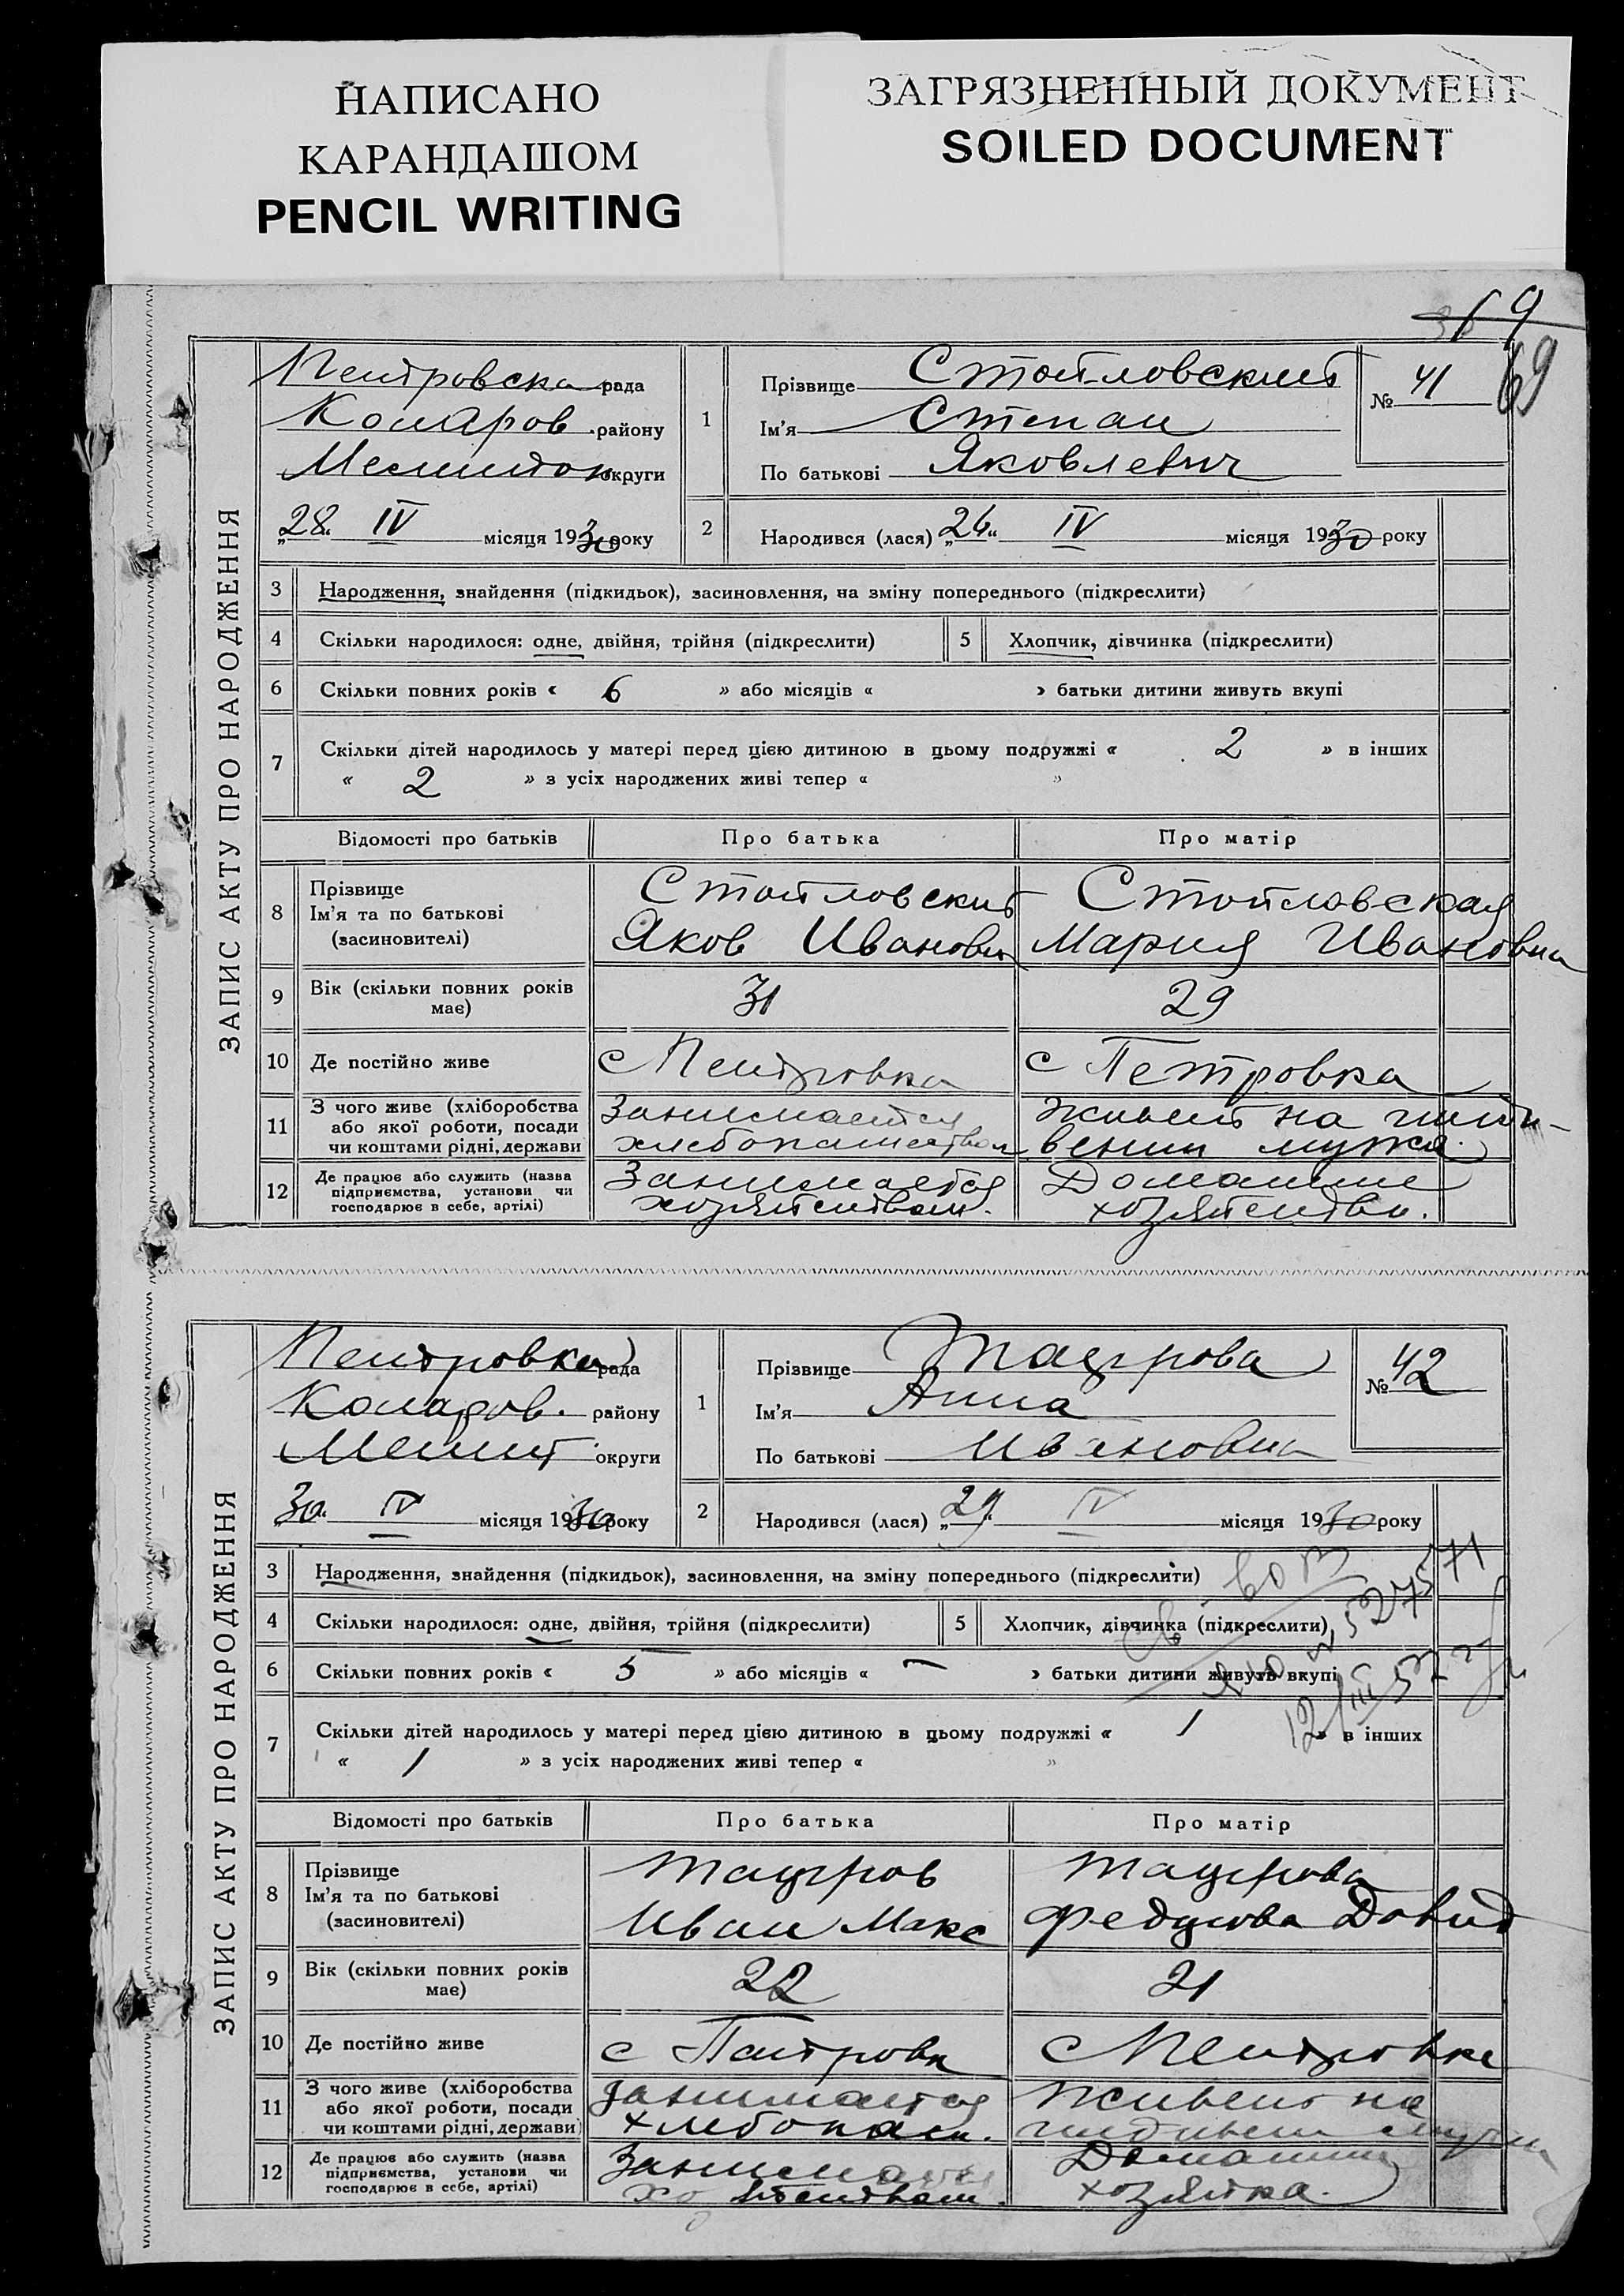 НАПИСАНО
КАРАНДАШОМ
PENCIL WRITING
ЗАГРЯЗНЕННЫЙ ДОКУМЕНТ
SOILED DOCUMENT
69
ЗАПИС АКТУ ПРО НАРОДЖЕННЯ
Петровска рада
Коларов району
округи
„28“ IV місяця 1930 року
1
Прізвище Стойловский
Ім'я Степан
По батькові Яковлевич
№ 41
2
Народився (лася) „26“ IV місяця 1930 року
3 Народження, знайдення (підкидьок), засиновлення, на зміну попереднього (підкреслити)
4 Скільки народилося: одне, двійня, трійня (підкреслити) 5 Хлопчик, дівчинка (підкреслити)
6 Скільки повних років « 6 » або місяців « » батьки дитини живуть вкупі
7 Скільки дітей народилось у матері перед цією дитиною в цьому подружжі « 2 » в інших
« 2 » з усіх народжених живі тепер « »
Відомості про батьків Про батька Про матір
8 Прізвище
Ім'я та по батькові
(засиновителі)
Стойловский
Яков Иванович
Стойловская
Мария Ивановна
9 Вік (скільки повних років
має)
31 29
10 Де постійно живе с Петровка с Петровка
11 З чого живе (хліборобства
або якої роботи, посади
чи коштами рідні, держави
Занимается
хлебопашеством
живет на
мужа.
12 Де працює або служить (назва
підприємства, установи чи
господарює в себе, артілі)
Занимается
хозяйством.
Домашне
хозяйство.
ЗАПИС АКТУ ПРО НАРОДЖЕННЯ
Петровка рада
Коларов. району
Мелит округи
„30“ IV місяця 1930 року
1
Прізвище
Ім'я Анна
По батькові Ивановна
№ 42
2
Народився (лася) „29“ IV місяця 1930 року
3 Народження, знайдення (підкидьок), засиновлення, на зміну попереднього (підкреслити)
4 Скільки народилося: одне, двійня, трійня (підкреслити) 5 Хлопчик, дівчинка (підкреслити)
6 Скільки повних років « 5 » або місяців « — » батьки дитини живуть вкупі
7 Скільки дітей народилось у матері перед цією дитиною в цьому подружжі « 1 » в інших
« 1 » з усіх народжених живі тепер « »
Відомості про батьків Про батька Про матір
8 Прізвище
Ім'я та по батькові
(засиновителі)
Иван Макс
Давид
9 Вік (скільки повних років
має)
22 21
10 Де постійно живе с Петровк с Петровке
11 З чого живе (хліборобства
або якої роботи, посади
чи коштами рідні, держави)
занимается
хлебопаш.
Живет на
12 Де працює або служить (назва
підприємства, установи чи
господарює в себе, артілі)
хозяйством.
Домашняя
хозяйка.